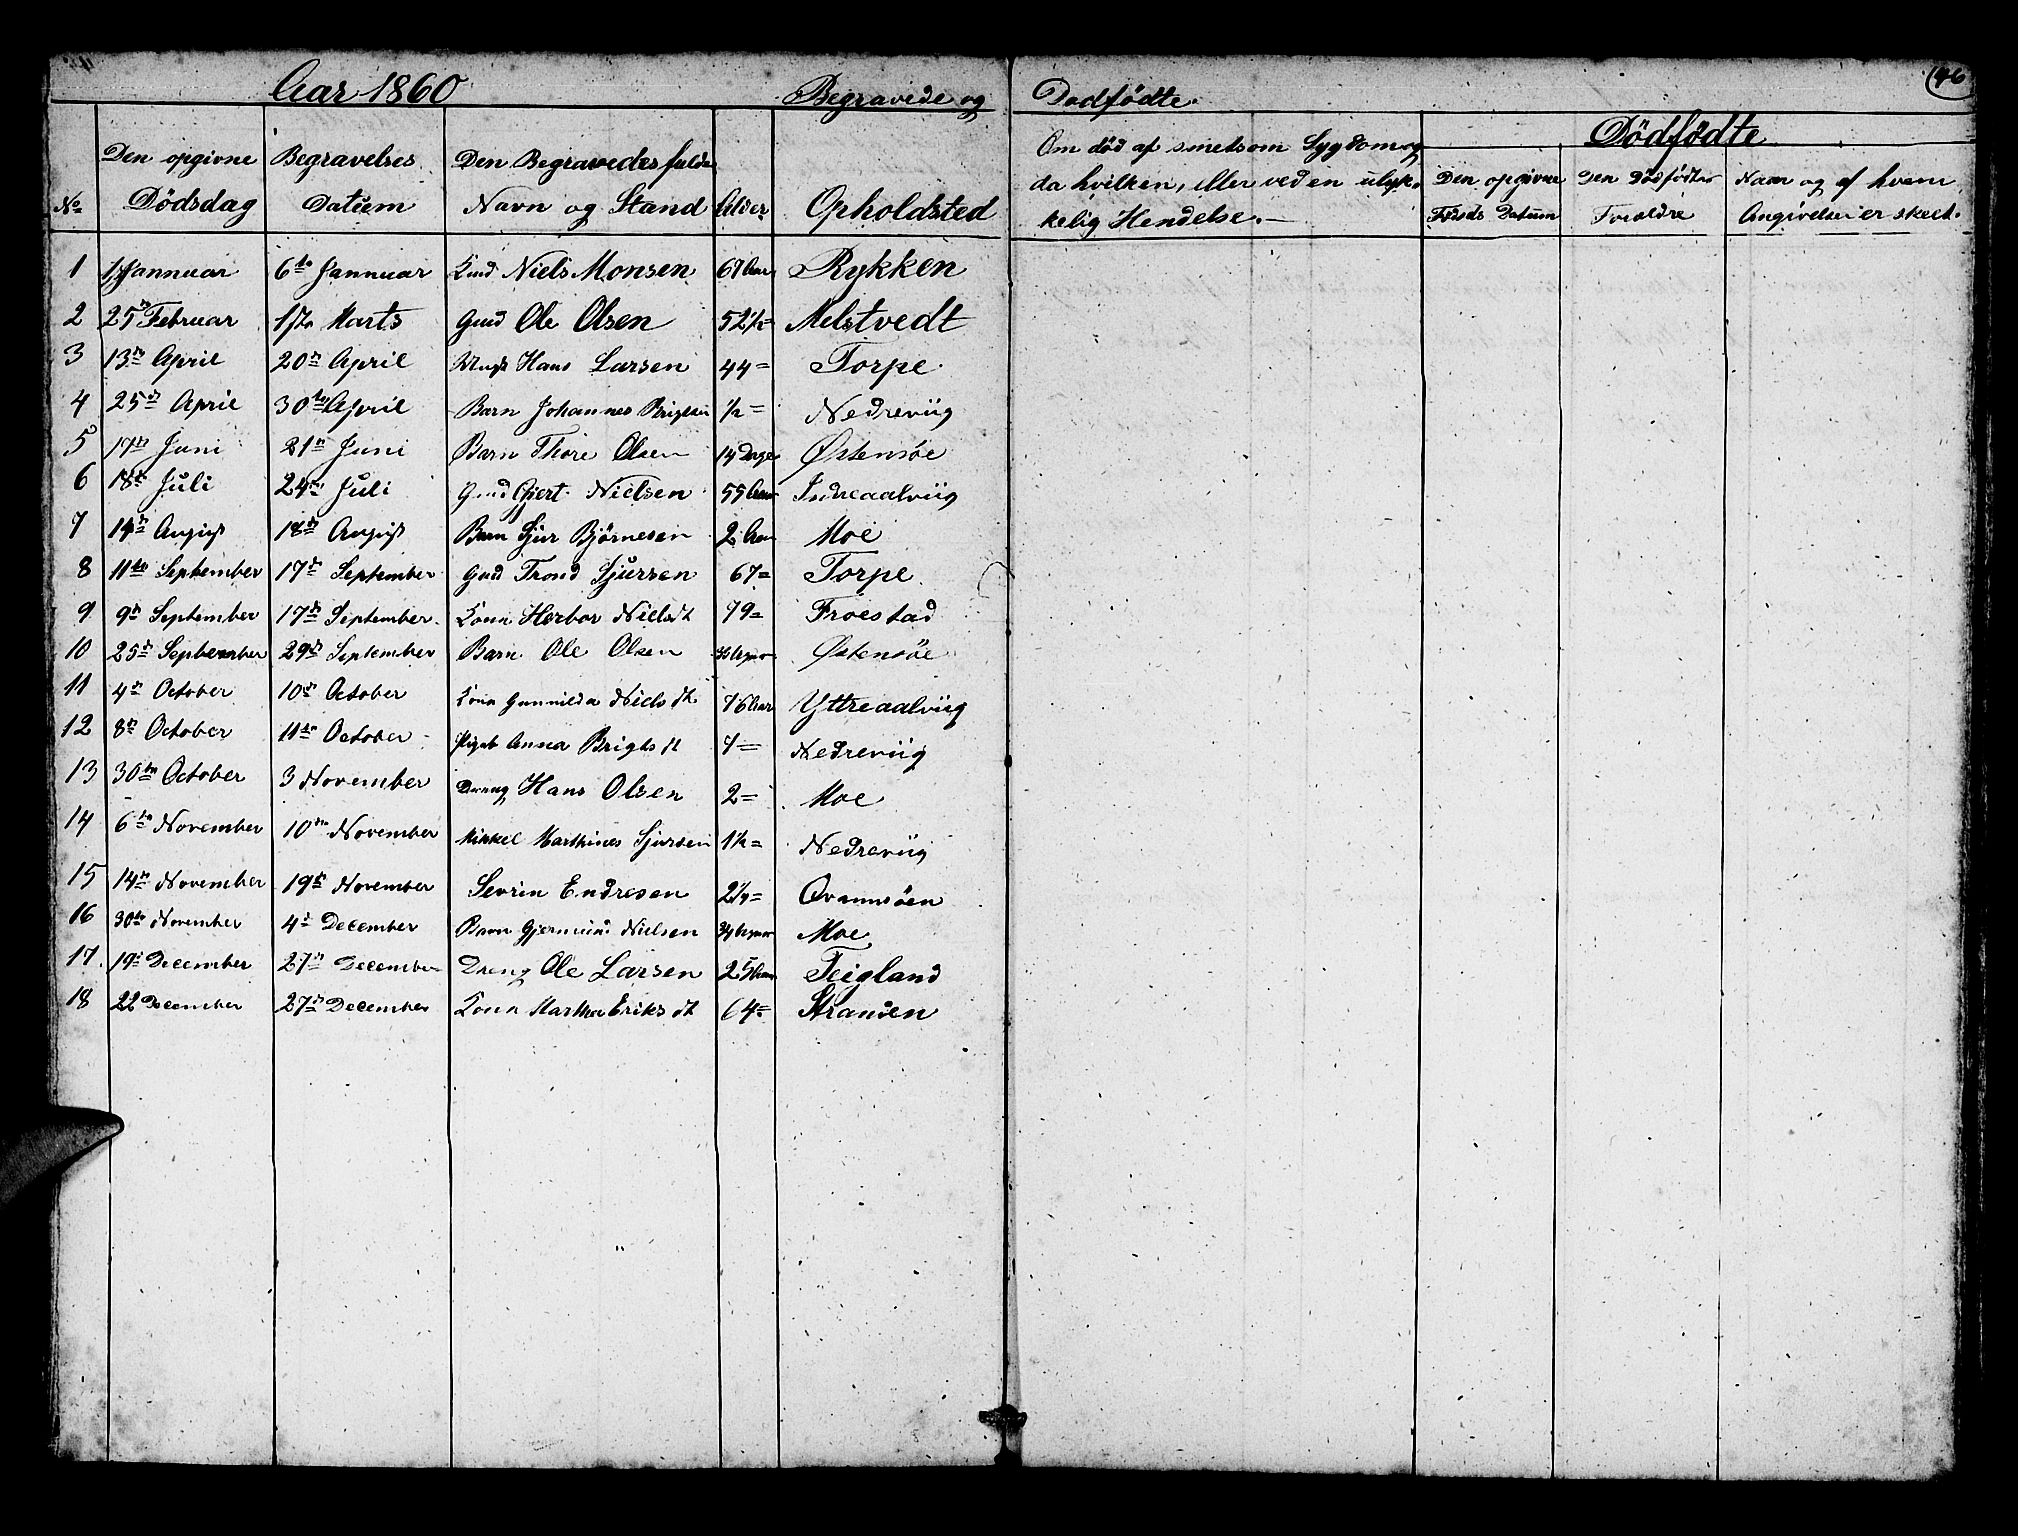 Aar 1860 Begravede og Dødfødte.
146
No Den opgivne Dödsdag Begravelses Datum Den Begravedes fulde Navn og Stand Alder Opholdsted Om död af smetsom Sygdom og da hvilken, eller ved en ulyk- kelig Hendelse.— Dödfødte Den opgivne Föds Datum Den Dödfødtes Forældre Navn og af hvem Angivelsen er skeet.
1 1ste Jannuar 6te Jannuar Kmd Niels Monsen 67 Aar Rykken
2 25n Februar 1ste Marts Gmd Ole Olsen 52½ = Melstvedt
3 13n April 20n April Hans Larsen 44 = Torpe
4 25n April 30te April Barn Johannes Brigtsen ½ = Nedreviig
5 17n Juni 21n Juni Barn Thore Olsen 14 Dage Østensöe
6 18n Juli 24n Juli Gmd Gjert Nielsen 55 Aar Indreaalviig
7 14n August 18n August Barn Sjur Bjørnesen 2 Aar Moe
8 11te September 17n September Gmd Trond Sjursen 67 = Torpe
9 9n September 17n September Kone Herbor Nielsdt 79 = Froestad
10 25n September 29n September Barn Ole Olsen Østensöe
11 4n October 10n October Kone Gunnilda Nielsdt 76 Aar Yttreaalviig
12 8n October 11te October Pige Anna Brigtsdt 7 = Nedreviig
13 30te October 3 November Dreng Hans Olsen 2 = Moe
14 6te November 10n November Mikkel Marthines Sjursen 1½ = Nedreviig
15 14n November 19n November Sevrin Endresen 2¼ = Qvamsöen
16 30te November 4n December Barn Gjermund Nielsen Moe
17 19n December 27n December Dreng Ole Larsen 25 Aar Teigland
18 22 December 27n December Kone Martha Eriksdt 64 = Stranden